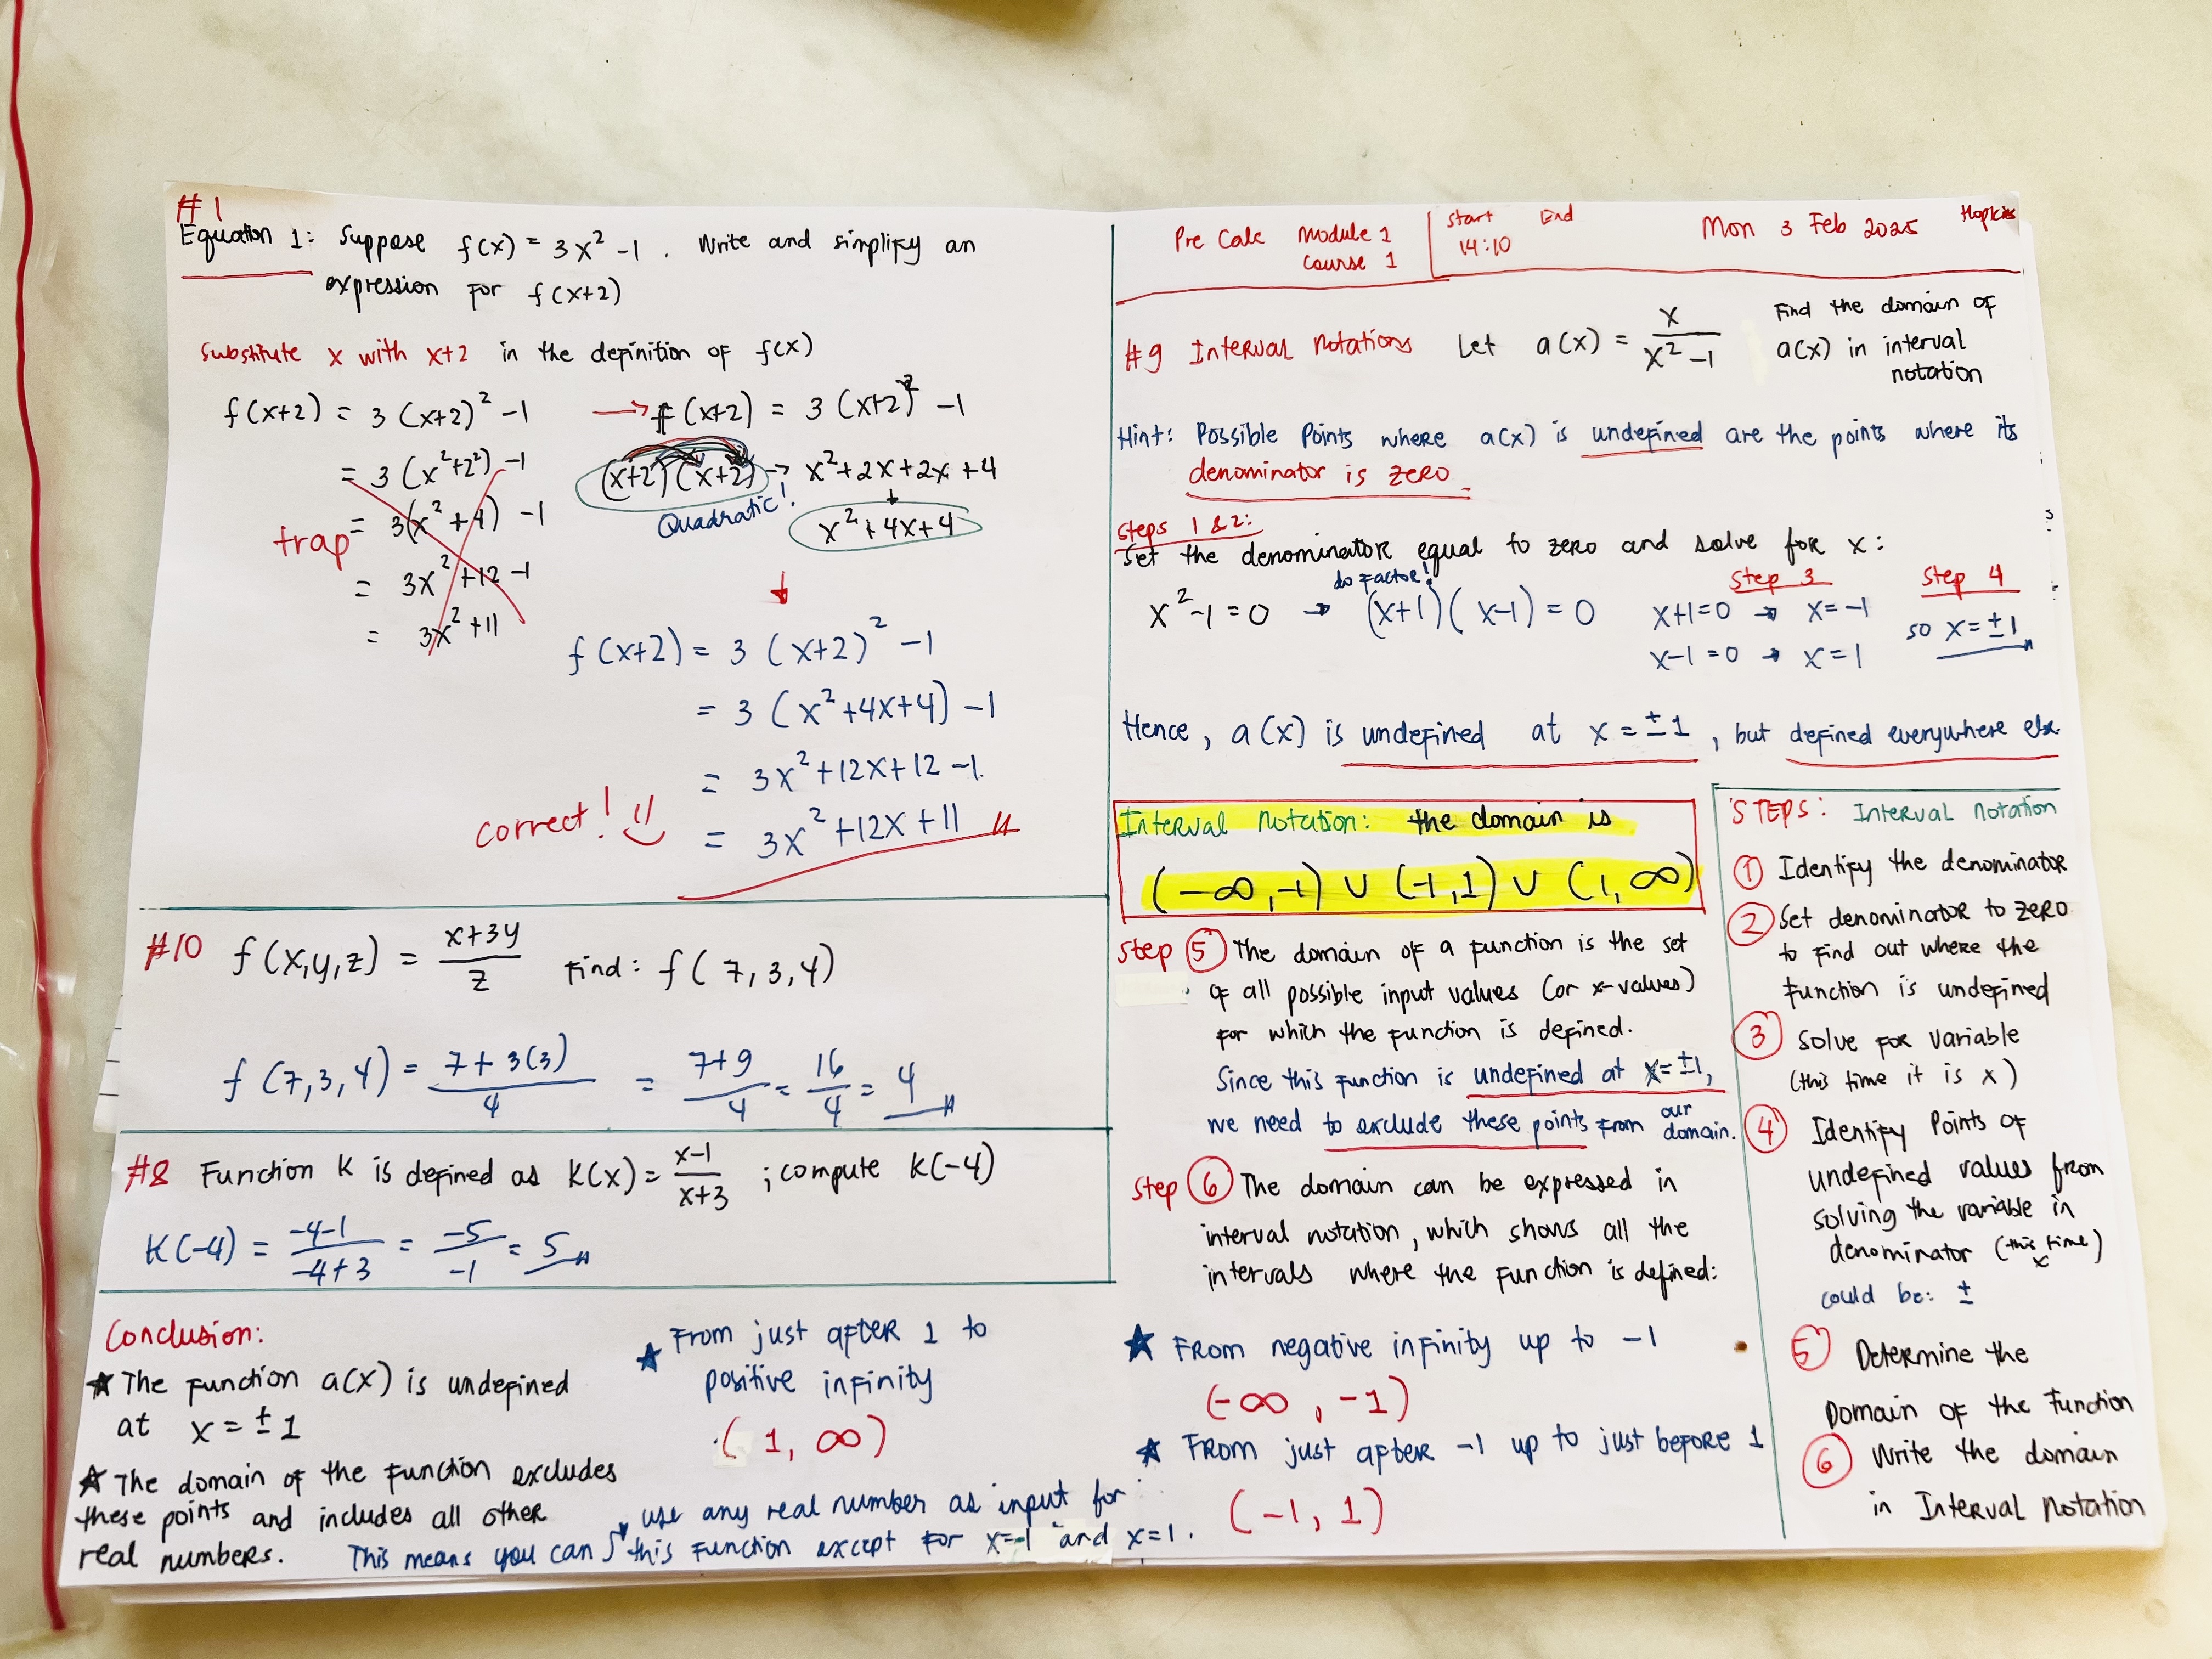 #1
Equation 1: Suppose f(x) = 3x² -1. Write and simplify an
expression for f(x+2)
Substitute x with x+2 in the definition of f(x)
f(x+2) = 3(x+2)² -1
= 3(x²+2²) -1
= 3(x²+4) -1
trap
= 3x²+12 -1
= 3x²+11
→ f(x+2) = 3(x+2)² -1
(x+2)(x+2) → x²+2x+2x+4
Quadratic!
x²+4x+4
f(x+2) = 3(x+2)² -1
= 3(x²+4x+4) -1
= 3x²+12x+12 -1
= 3x²+12x+11
correct!
#10 f(x,y,z) = x+3y/z Find: f(7,3,4)
f(7,3,4) = 7+3(3)/4 = 7+9/4 = 16/4 = 4
#8 Function K is defined as K(x) = x-1/x+3 ; compute K(-4)
K(-4) = -4-1/-4+3 = -5/-1 = 5
Conclusion:
★ The function a(x) is undefined
at x = ±1
★ The domain of the function excludes
these points and includes all other
real numbers.
This means you can use any real number as input for
this function except for x=-1 and x=1.
★ From just after 1 to
positive infinity
(1, ∞)
Pre Calc Module 1
Course 1
Start End
14:10
Mon 3 Feb 2025 Hopkins
#9 Interval Notations Let a(x) = x/x²-1
Find the domain of
a(x) in interval
notation
Hint: Possible Points where a(x) is undefined are the points where its
denominator is zero.
Steps 1 & 2:
Set the denominator equal to zero and solve for x:
do Factor!
x²-1=0 → (x+1)(x-1)=0
Step 3
x+1=0 → x=-1
x-1=0 → x=1
Step 4
so x=±1
Hence, a(x) is undefined at x = ±1, but defined everywhere else
Interval Notation: the domain is
(-∞,-1) ∪ (-1,1) ∪ (1,∞)
Step 5 The domain of a function is the set
of all possible input values (or x-values)
for which the function is defined.
Since this function is undefined at x=±1,
we need to exclude these points from our domain.
Step 6 The domain can be expressed in
interval notation, which shows all the
intervals where the function is defined:
★ From negative infinity up to -1
(-∞, -1)
★ From just after -1 up to just before 1
(-1, 1)
STEPS: Interval Notation
1 Identify the denominator
2 Set denominator to zero
to find out where the
function is undefined
3 Solve for variable
(this time it is x)
4 Identify Points of
undefined values from
solving the variable in
denominator (this time x)
could be: ±
5 Determine the
Domain of the Function
6 Write the domain
in Interval Notation